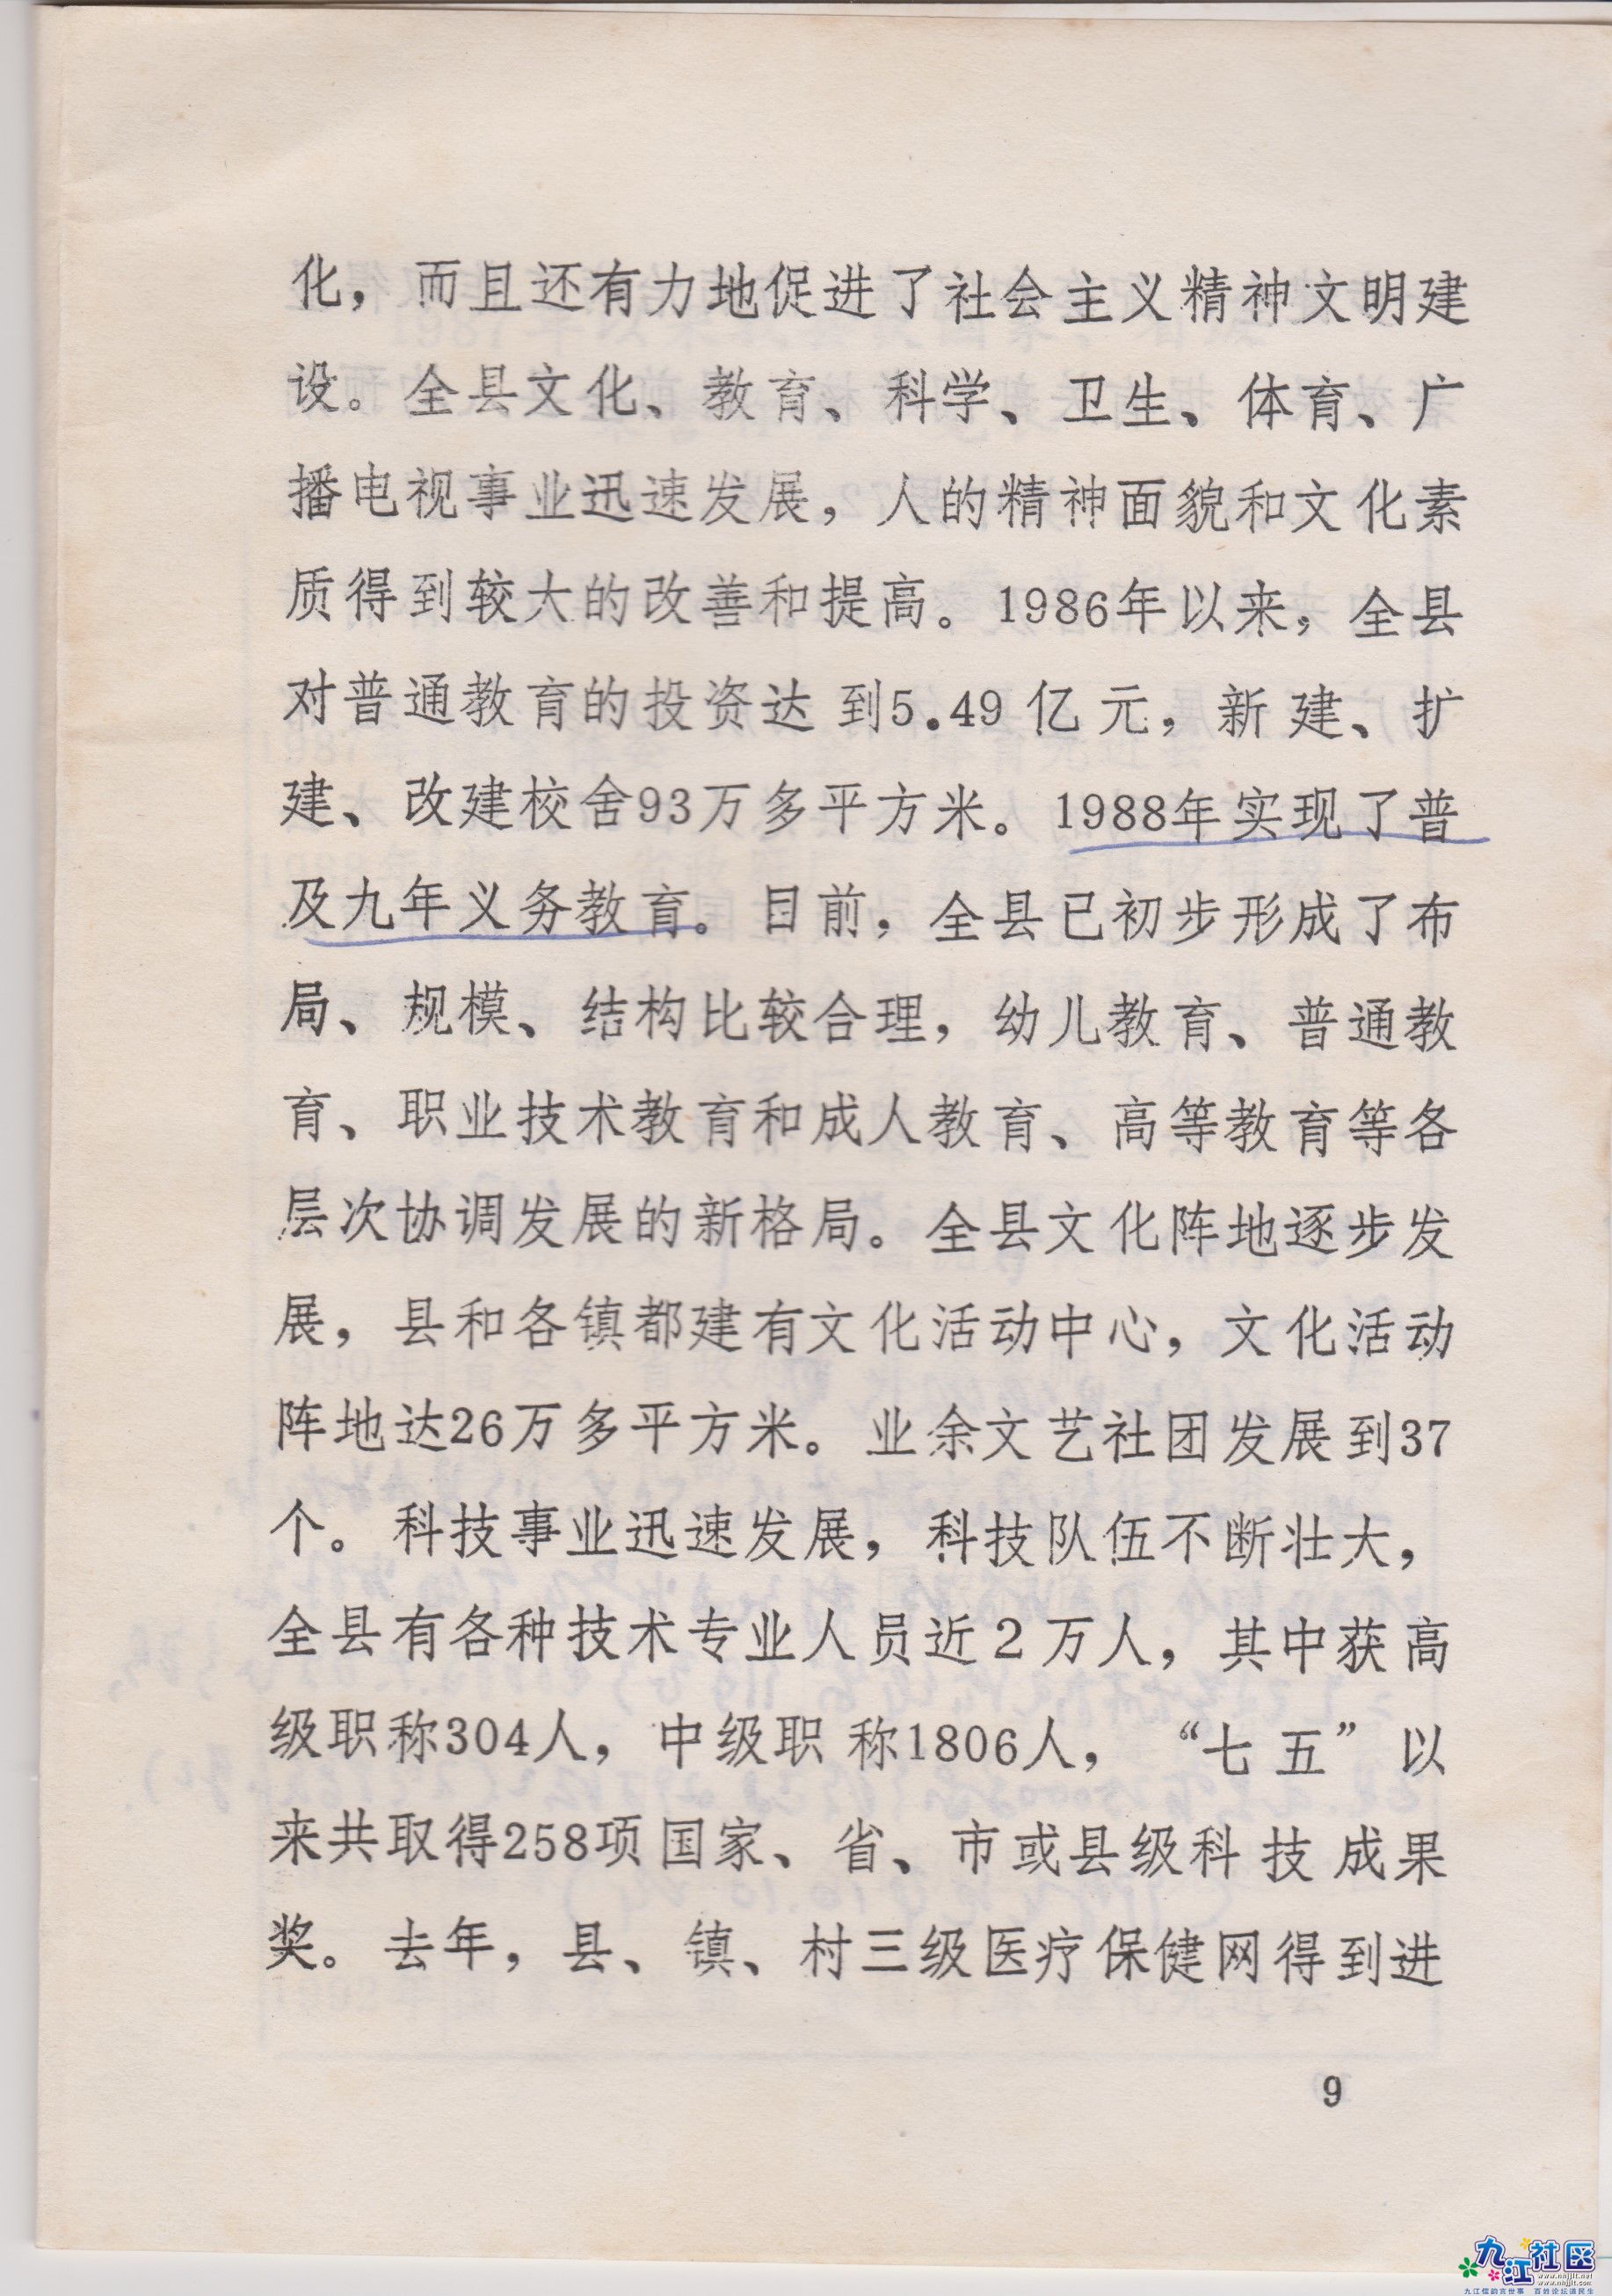 化，而且还有力地促进了社会主义精神文明建
设。全县文化、教育、科学、卫生、体育、广
播电视事业迅速发展，人的精神面貌和文化素
质得到较大的改善和提高。1986年以来，全县
对普通教育的投资达到5.49亿元，新建、扩
建、改建校舍93万多平方米。1988年实现了普
及九年义务教育。目前，全县已初步形成了布
局、规模、结构比较合理，幼儿教育、普通教
育、职业技术教育和成人教育、高等教育等各
层次协调发展的新格局。全县文化阵地逐步发
展，县和各镇都建有文化活动中心，文化活动
阵地达26万多平方米。业余文艺社团发展到37
个。科技事业迅速发展，科技队伍不断壮大，
全县有各种技术专业人员近2万人，其中获高
级职称304人，中级职称1806人，“七五”以
来共取得258项国家、省、市或县级科技成果
奖。去年，县、镇、村三级医疗保健网得到进
9
九江社区